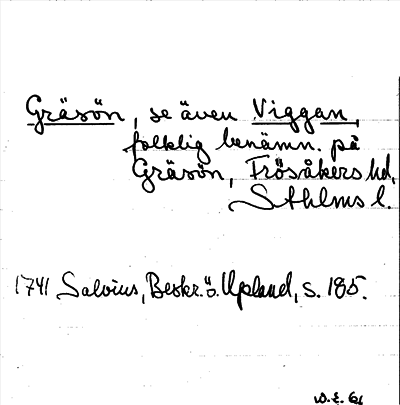 Gräsön, se även Viggan,
folklig benämn. på
Gräsön, Frösåkers hd,
Sthlms l.
1741 Salvius, Beskr. ö. Upland, s. 185.
W.E. 61